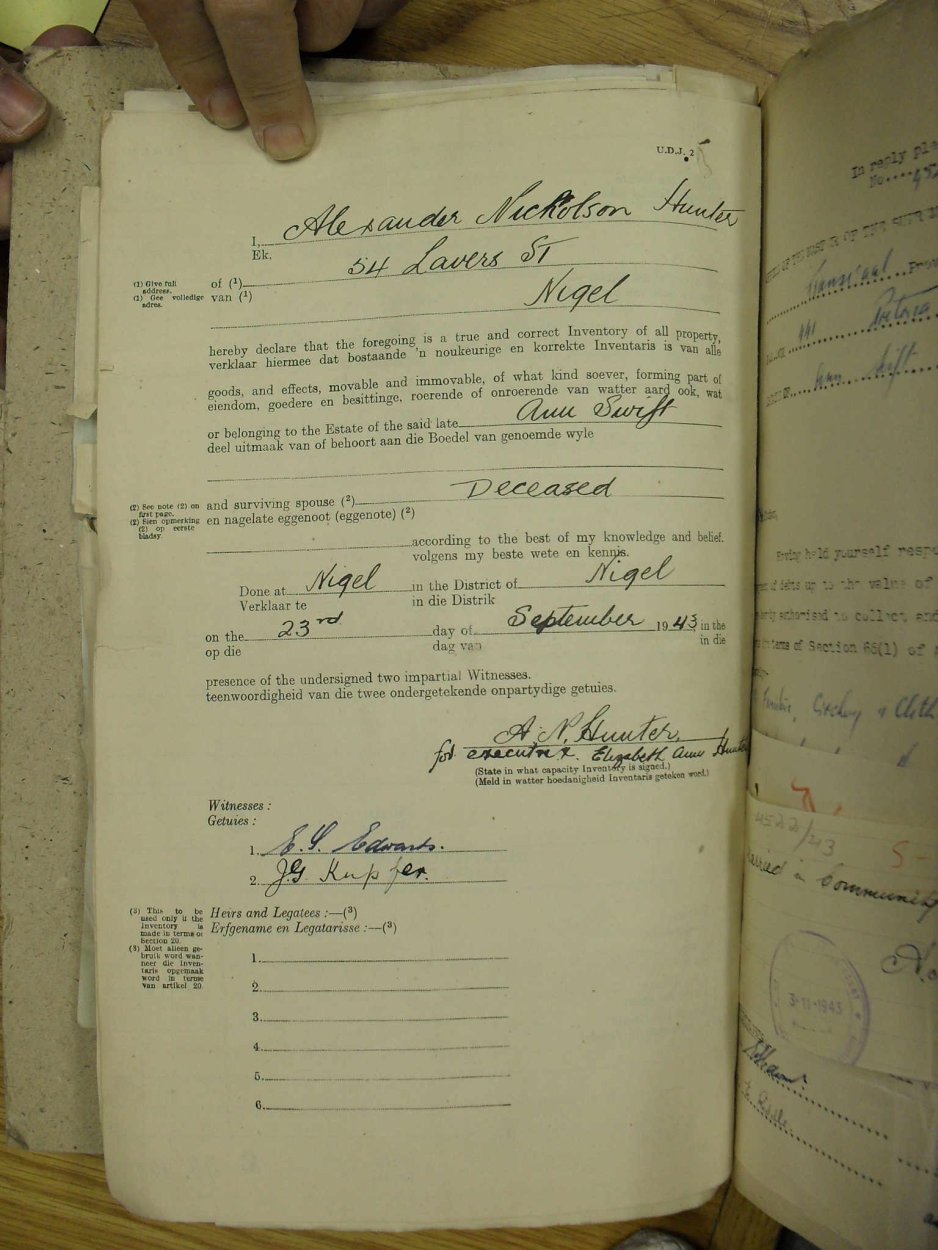 U.D.J. 2
I, Alexander Nickolson Hunter
Ek.
(1) Give full address.
(1) Gee volledige adres.
of (1) 54 Lavers St
van (1) Nigel
hereby declare that the foregoing is a true and correct Inventory of all property,
verklaar hiermee dat bostaande 'n noukeurige en korrekte Inventaris is van alle
goods, and effects, movable and immovable, of what kind soever, forming part of
eiendom, goedere en besittinge, roerende of onroerende van watter aard ook, wat
or belonging to the Estate of the said late Ann Swift
deel uitmaak van of behoort aan die Boedel van genoemde wyle
(2) See note (2) on first page.
(2) Sien opmerking (2) op eerste bladsy.
and surviving spouse (2) Deceased
en nagelate eggenoot (eggenote) (2)
according to the best of my knowledge and belief.
volgens my beste wete en kennis.
Done at Nigel in the District of Nigel
Verklaar te in die Distrik
on the 23rd day of September 1943 in the
op die dag van in die
presence of the undersigned two impartial Witnesses.
teenwoordigheid van die twee ondergetekende onpartydige getuies.
A. N. Hunter.
for executrix. Elizabeth Ann Hunter
(State in what capacity Inventory is signed.)
(Meld in watter hoedanigheid Inventaris geteken word.)
Witnesses :
Getuies :
1. E. S. Edwards.
2. J.G Kupfer.
(3) This to be used only if the Inventory is made in terms of Section 20.
(3) Moet alleen gebruik word wanneer die Inventaris opgemaak word in terme van artikel 20.
Heirs and Legatees :—(3)
Erfgename en Legatarisse :—(3)
1.
2.
3.
4.
5.
6.
In reply ple
No.
Transvaal
Pretoria
Ann Swift
having held yourself respo
of debts up to the value of
authorised to collect and
in terms of Section 66(1) of
4522/43
married in Community
3-11-1943